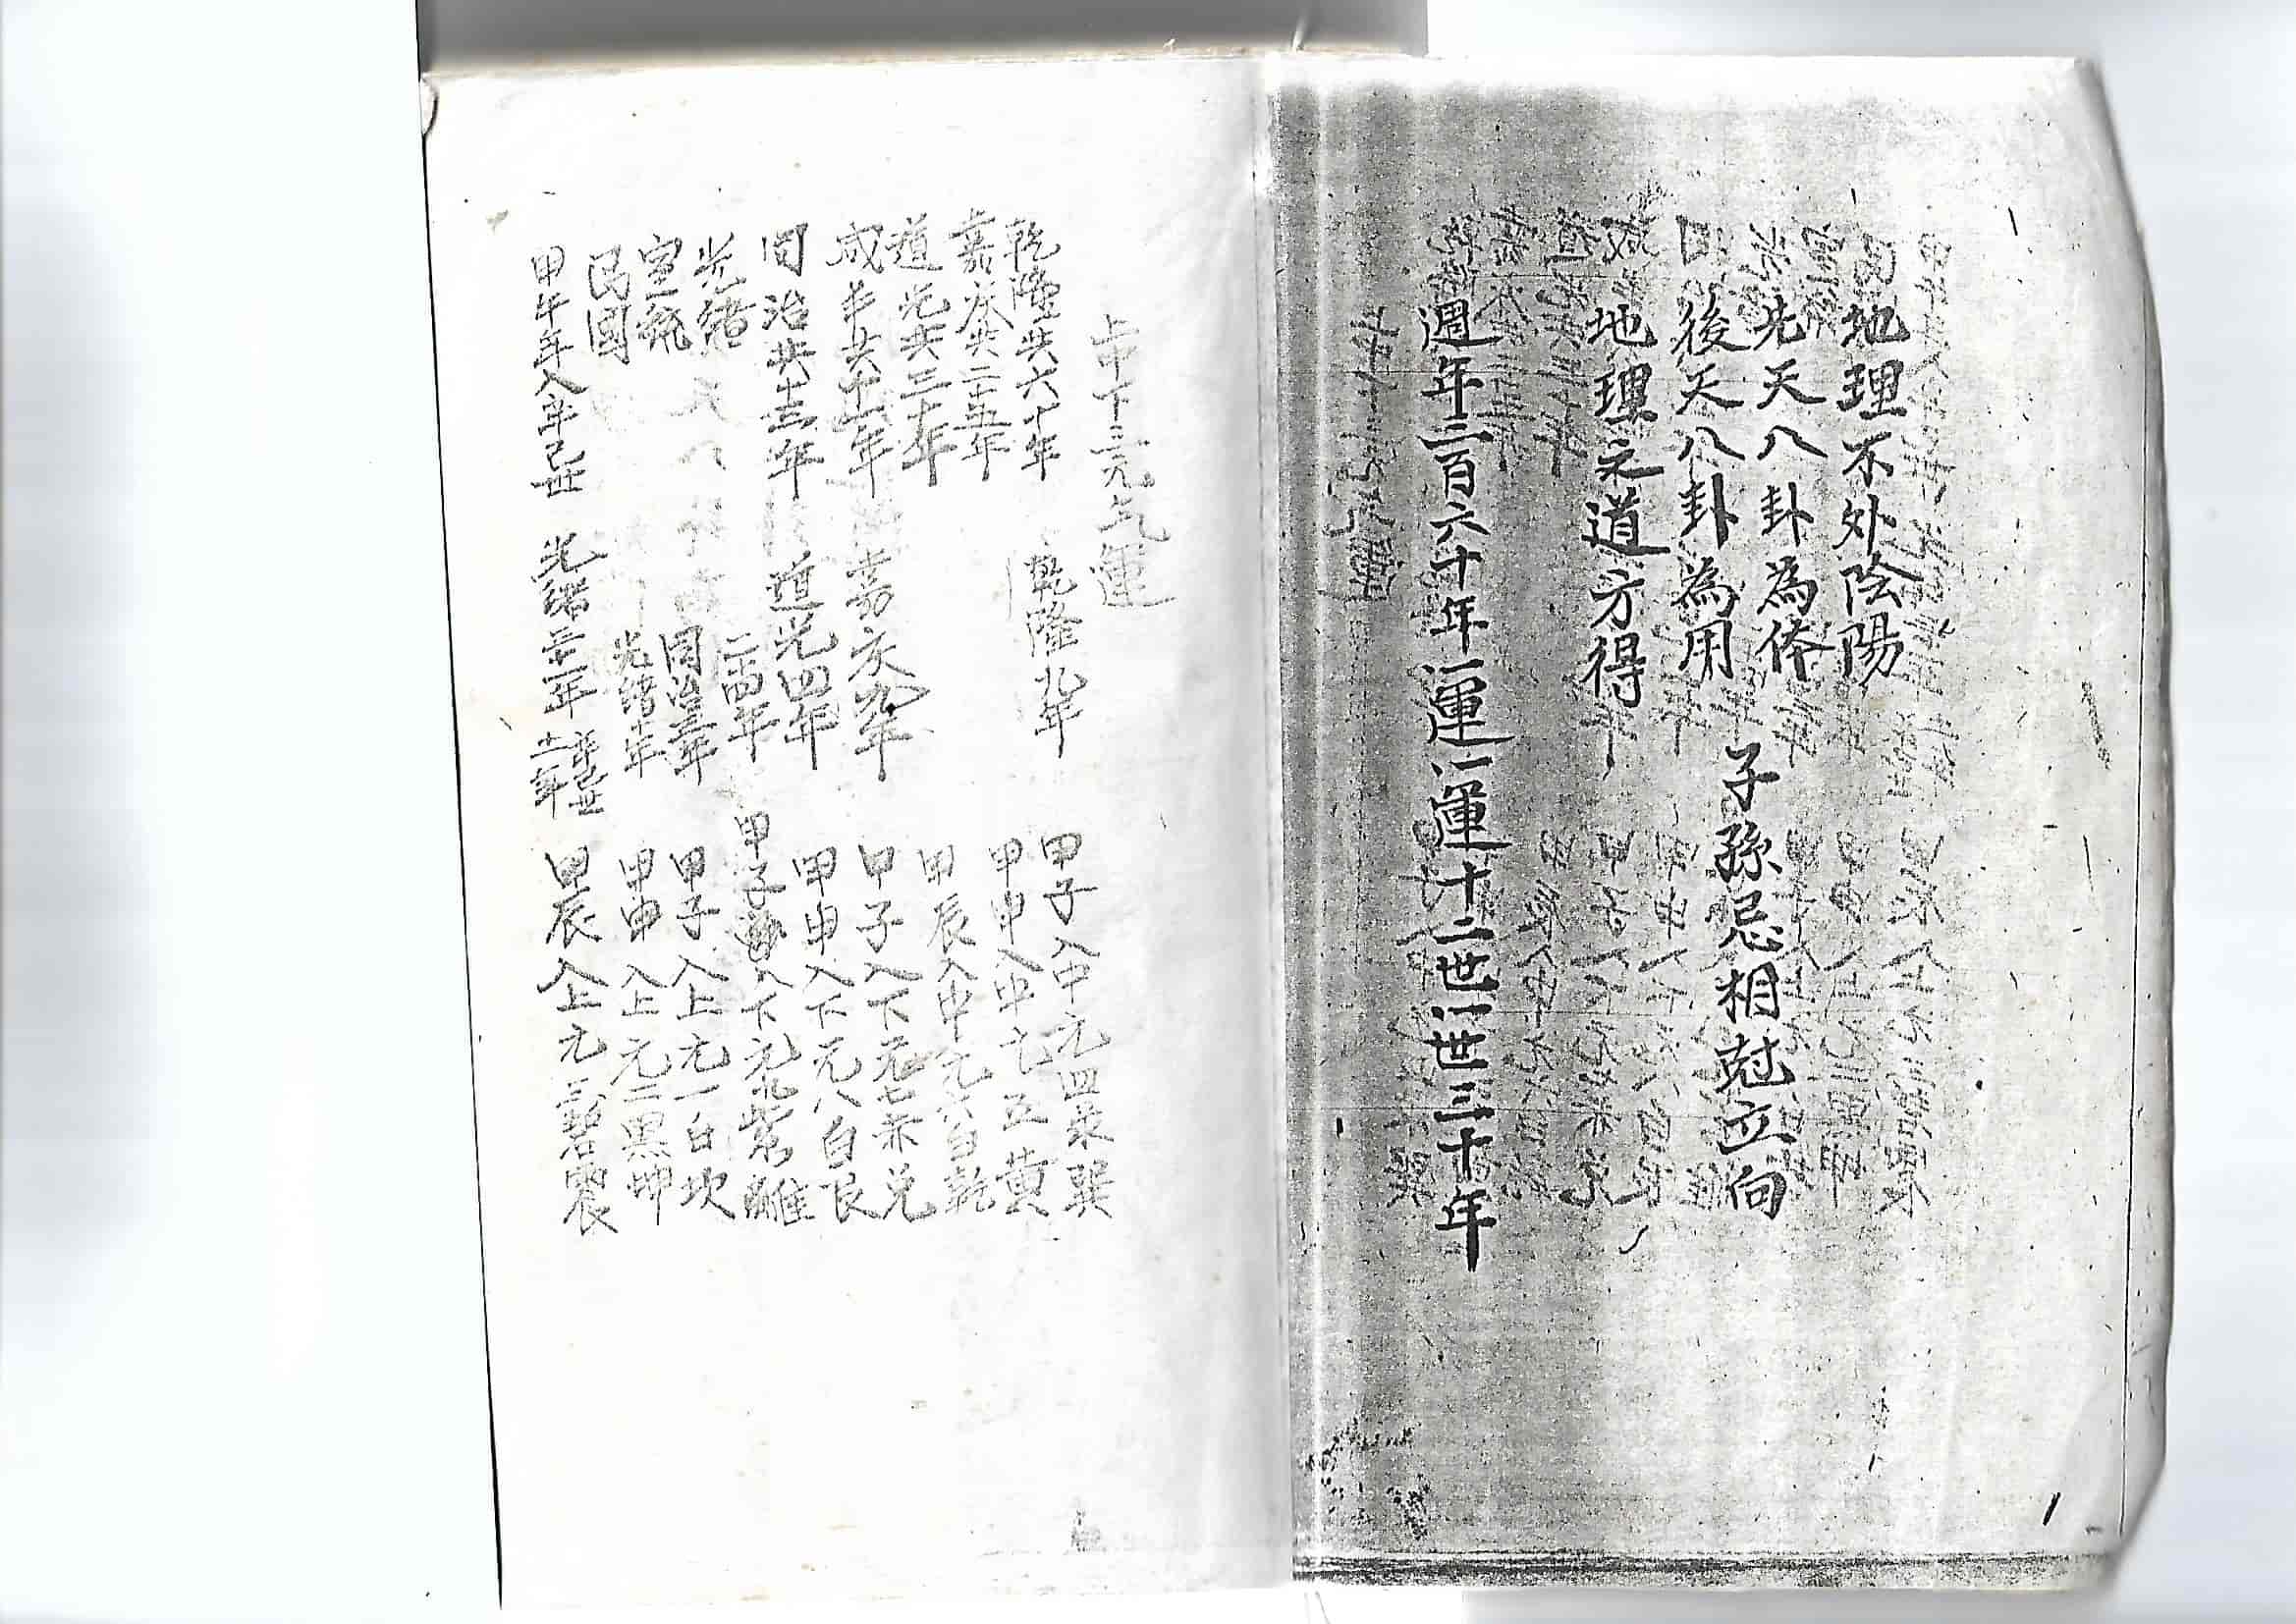 地理不外陰陽
先天八卦為体
後天八卦為用
子孫忌相尅立向
地理之道方得
週年三百六十年一運一運十二世一世三十年
上中下三元气運
乾隆共六十年
嘉庆共二十五年
道光共三十年
咸丰共十一年
同治共十三年
光緒
宣統
民國
甲午年入辛己世
乾隆九年
嘉庆九年
道光四年
二十四年
同治三年
光緒十年
光緒三十一年
甲子入中元四彔巽
甲申入中元五黄
甲辰入中元六白乾
甲子入下元七赤兑
甲申入下元八白艮
甲子入下元九紫離
甲子入上元一白坎
甲申入上元二黑坤
甲辰入上元三碧震